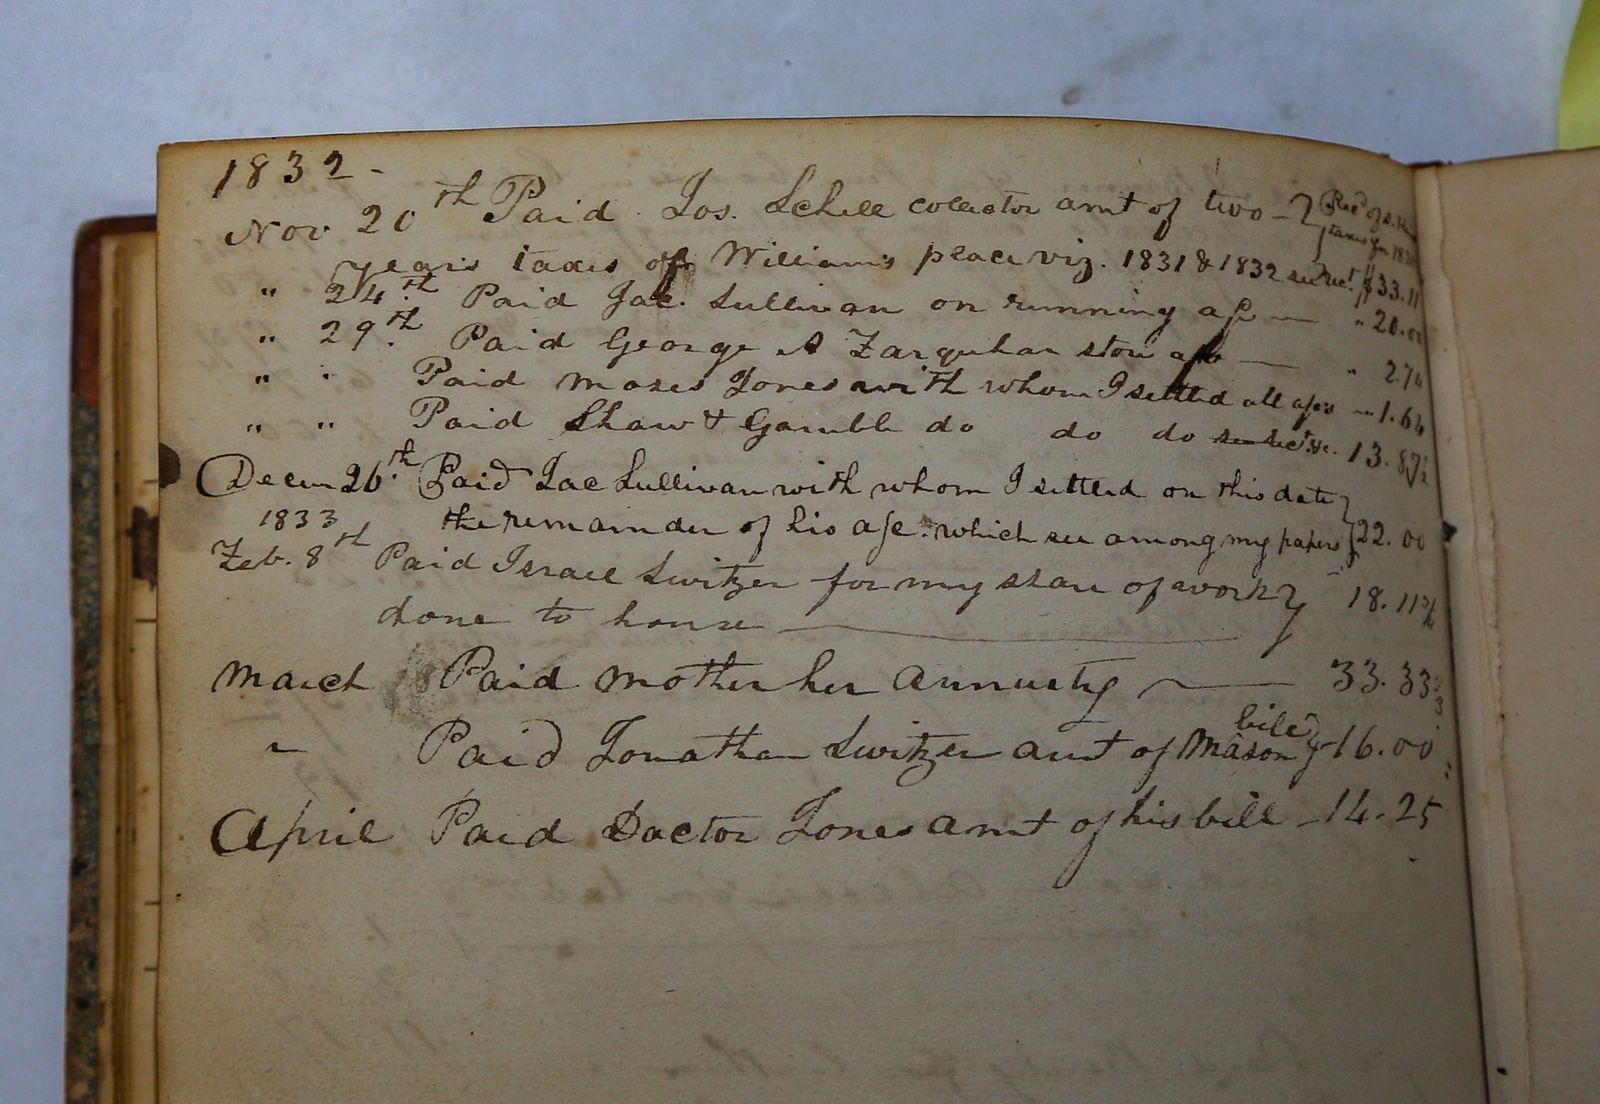 1832 -
Nov 20th Paid Jos. Schell collector amt of two - Recd of
years taxes of Williams place viz. 1831 & 1832 see rect. $33.11 taxes for
" 24.th Paid Jac. Sullivan on running a/c — " 20.00
" 29.th Paid George A Farquhar store a/c — " 2.74
" " Paid Moses Jones with whom I settled all a/cs — 1.64
" " Paid Shaw & Gamble do do do see rect. &c. 13.87½
Decem 26.th Paid Jac Sullivan with whom I settled on this date
the remainder of his a/c. which see among my papers 22.00
1833
Feb. 8th Paid Israel Switzer for my share of work 18.11
done to house
March Paid mother her annuity — 33.33
" Paid Jonathan Switzer amt of Mason bill - 16.00
April Paid Doctor Jones amt of his bill - 14.25